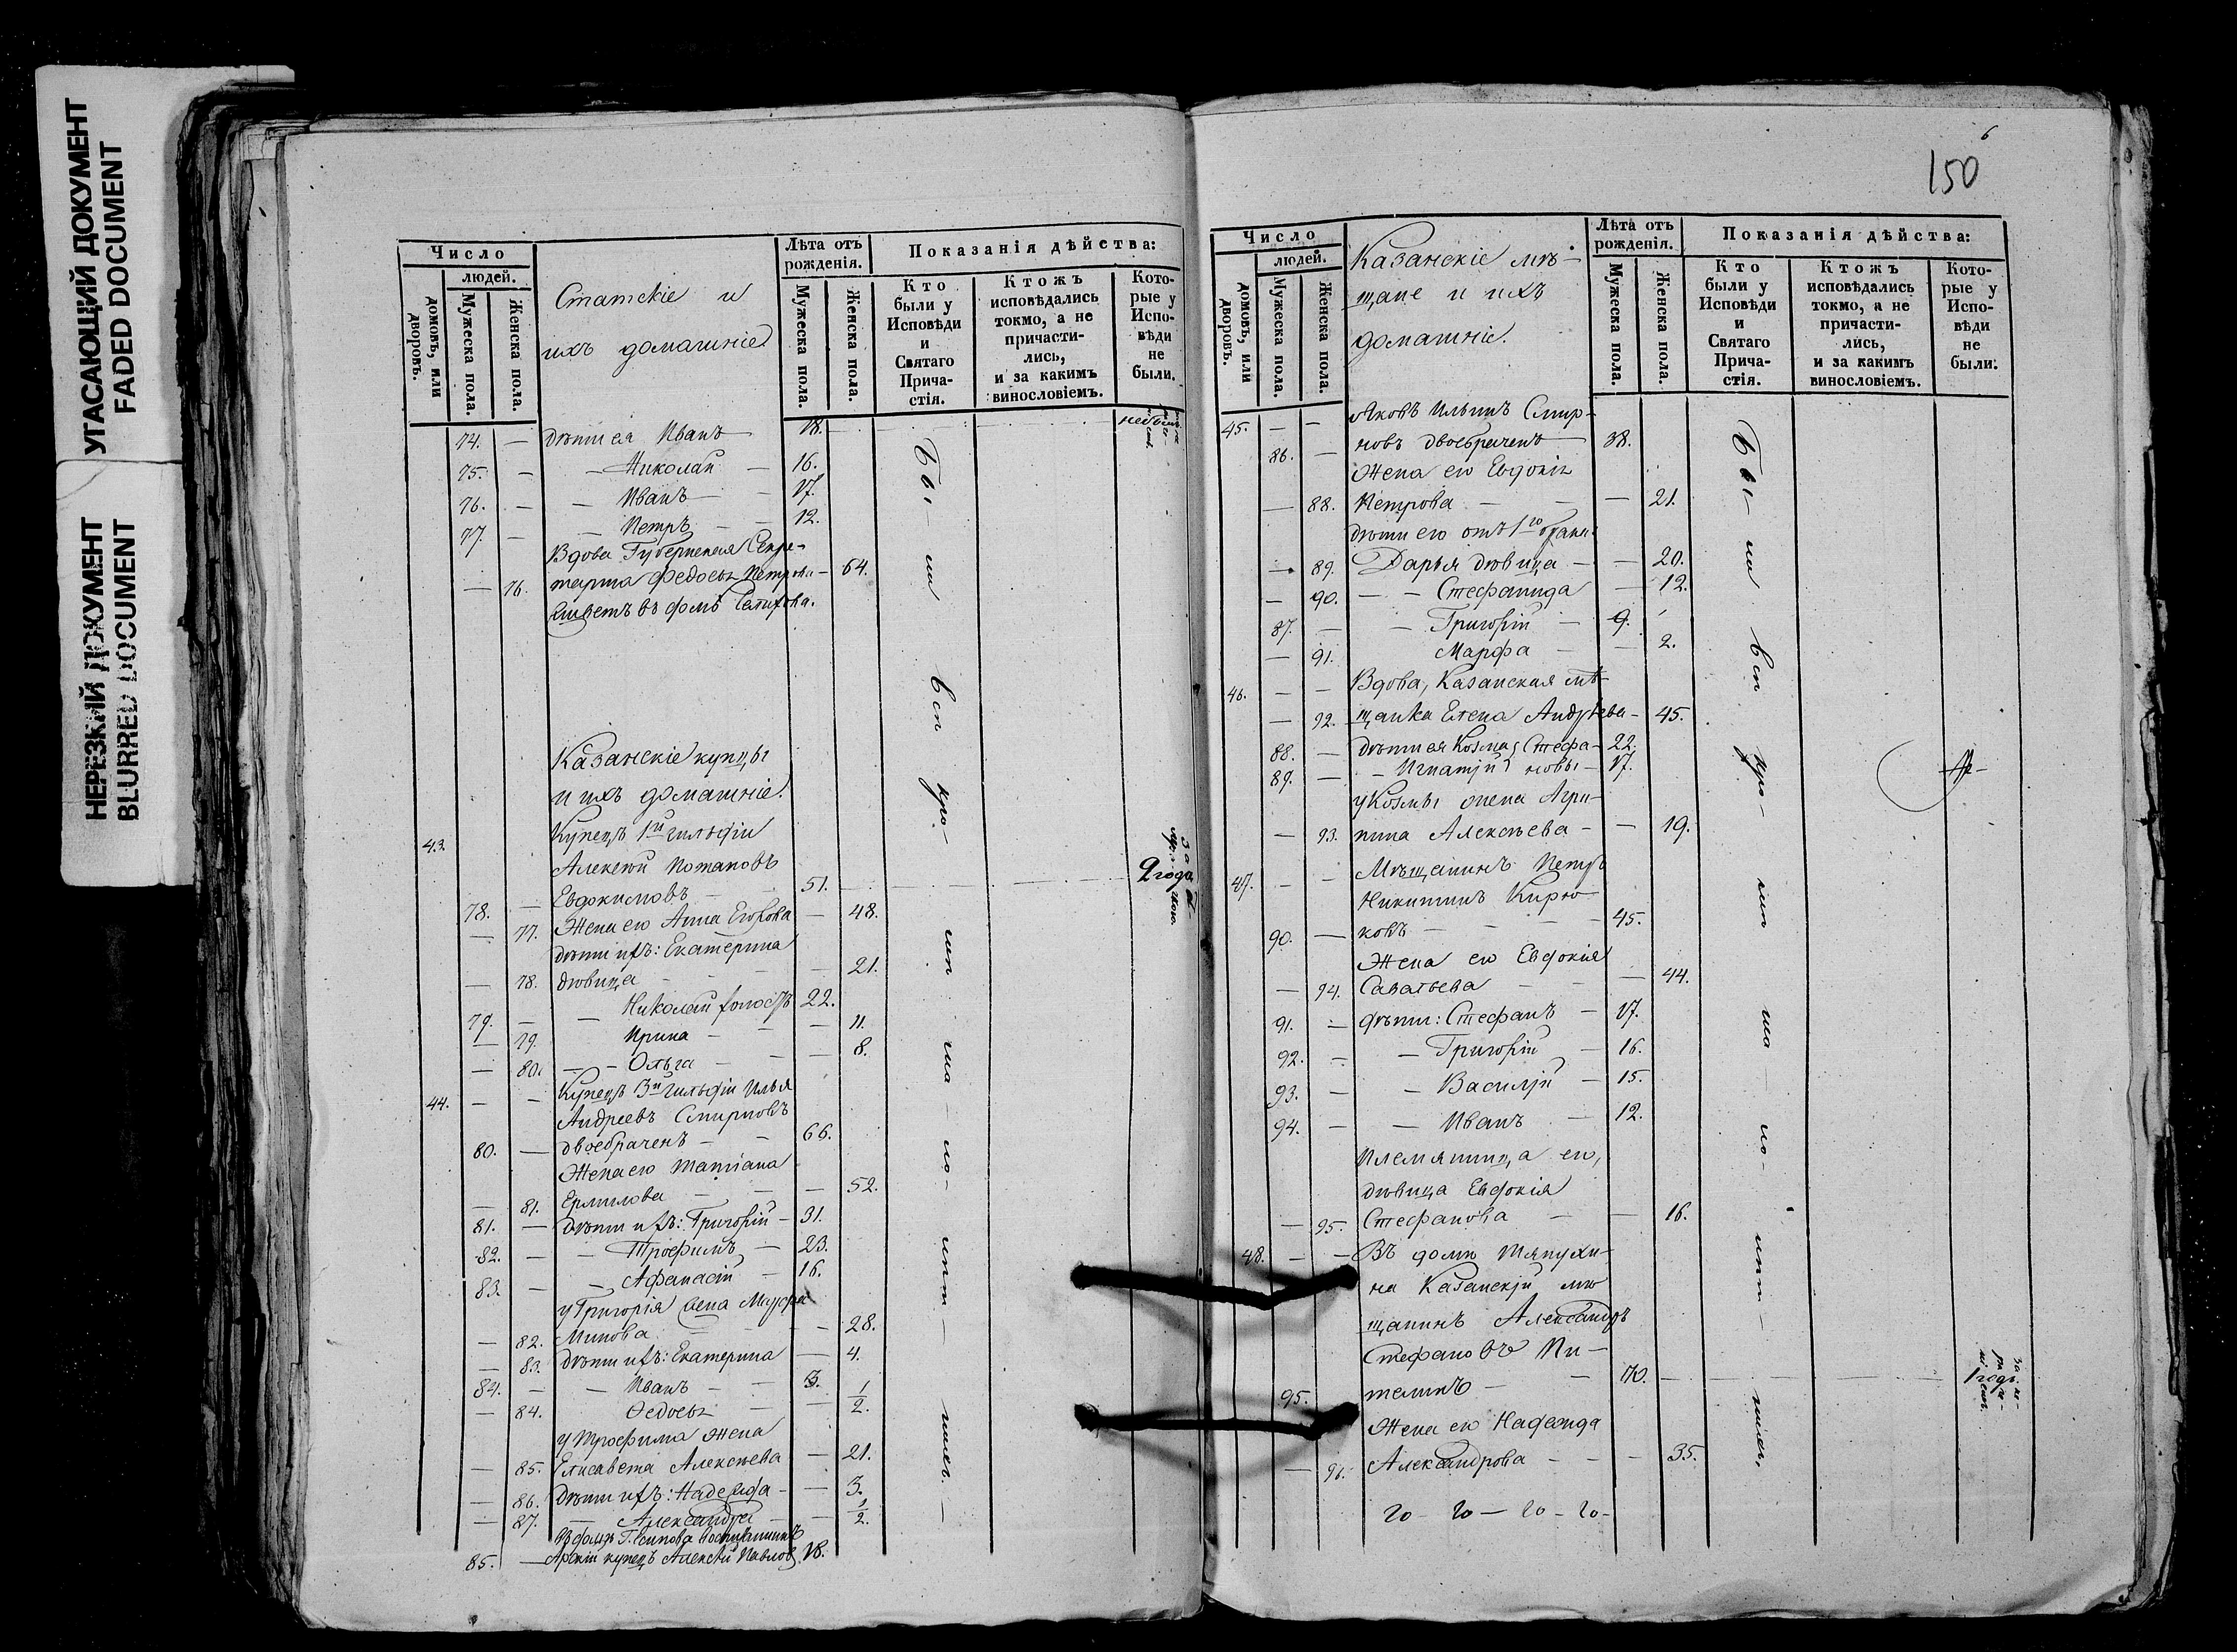 УГАСАЮЩИЙ ДОКУМЕНТ
FADED DOCUMENT
НЕРЕЗКИЙ ДОКУМЕНТ
BLURRED DOCUMENT
Число
людей.
домовъ, или дворовъ.
Мужеска пола.
Женска пола.
Статскіе и
ихъ домашніе.
Лѣта отъ рожденія.
Мужеска пола.
Женска пола.
Показанія дѣйства:
Кто были у Исповѣди и Святаго Прича-стія.
Ктожъ исповѣдались токмо, а не причасти-лись, и за какимъ винословіемъ.
Кото-рые у Испо-вѣди не были.
74. — дѣти ея Иванъ — 18.
75. — — Николай — 16.
76. — — Иванъ — 17.
77. — — Петръ — 12.
Вдова Губернская Секре-
— 76. тарша Федосья Петрова — 64.
живетъ въ домѣ
Казанскіе купцы
и ихъ домашніе.
43. Купецъ 1й гильдіи
Алексѣй Потаповъ
78. — Евдокимовъ — 51. 2 года
— 77. Жена его Анна Егорова — 48.
дѣти ихъ: Екатерина
— 78. дѣвица — 21.
79. — — Николай холостъ 22.
— 79. Ирина — 11.
— 80. — Ольга — 8.
44. — — Купецъ 3й гильдіи Илья
Андреевъ Смирновъ
80. — двоебраченъ — 66.
Жена его Татіана
— 81. Ермилова — 52.
81. — дѣти ихъ: Григорій — 31.
82. — — Трофимъ — 23.
83. — — Афанасій — 16.
у Григорія жена Марфа
— 82. Минова — 28.
— 83. дѣти ихъ: Екатерина — 4.
84. — — Иванъ — 3.
— 84. Федосья — 1/2.
у Трофима жена
— 85. Елисавета Алексѣева — 21.
— 86. дѣти ихъ: Надежда — 3.
— 87. — Александра — 1/2.
85. — купецъ Алексѣй Павлов 18.
Бы — ли всѣ кро — мѣ
6
150
Число
людей.
домовъ, или дворовъ.
Мужеска пола.
Женска пола.
Казанскіе мѣ-
щане и ихъ
домашніе.
Лѣта отъ рожденія.
Мужеска пола.
Женска пола.
Показанія дѣйства:
Кто были у Исповѣди и Святаго Прича-стія.
Ктожъ исповѣдались токмо, а не причасти-лись, и за какимъ винословіемъ.
Кото-рые у Испо-вѣди не были.
45. — — Яковъ Ильинъ Смир-
86. — новъ двоебраченъ — 38.
Жена его Евдокія
— 88. Петрова — — 21.
дѣти его отъ 1го брака:
— 89. Дарья дѣвица — — 20.
— 90. — — Стефанида — 12.
87. — — Григорій — 9.
— 91. Марфа — — 2.
46. — — Вдова, Казанская мѣ-
— 92. щанка Елена Андрѣева — 45.
88. — дѣти ея Козма Стефа- 22.
89. — — Игнатій новы — 17.
у Козмы жена Агри-
— 93. пина Алексѣева — — 19.
47. — — Мѣщанинъ Петръ
Никитинъ Кирю-
90. — ковъ — 45.
Жена его Евдокія
— 94. Саватьева — 44.
91. — дѣти: Стефанъ — 17.
92. — — Григорій — 16.
93. — — Василій — 15.
94. — — Иванъ — 12.
Племянница его,
дѣвица Евдокія
— 95. Стефанова — — 16.
48. — — Въ домѣ Тяпухи-
на Казанскій мѣ
щанинъ Александръ
Стефановъ Пи-
95. телинъ — 70. 1 годъ
Жена его Надежда
— 96. Александрова — — 35.
Бы — ли всѣ кро — мѣ